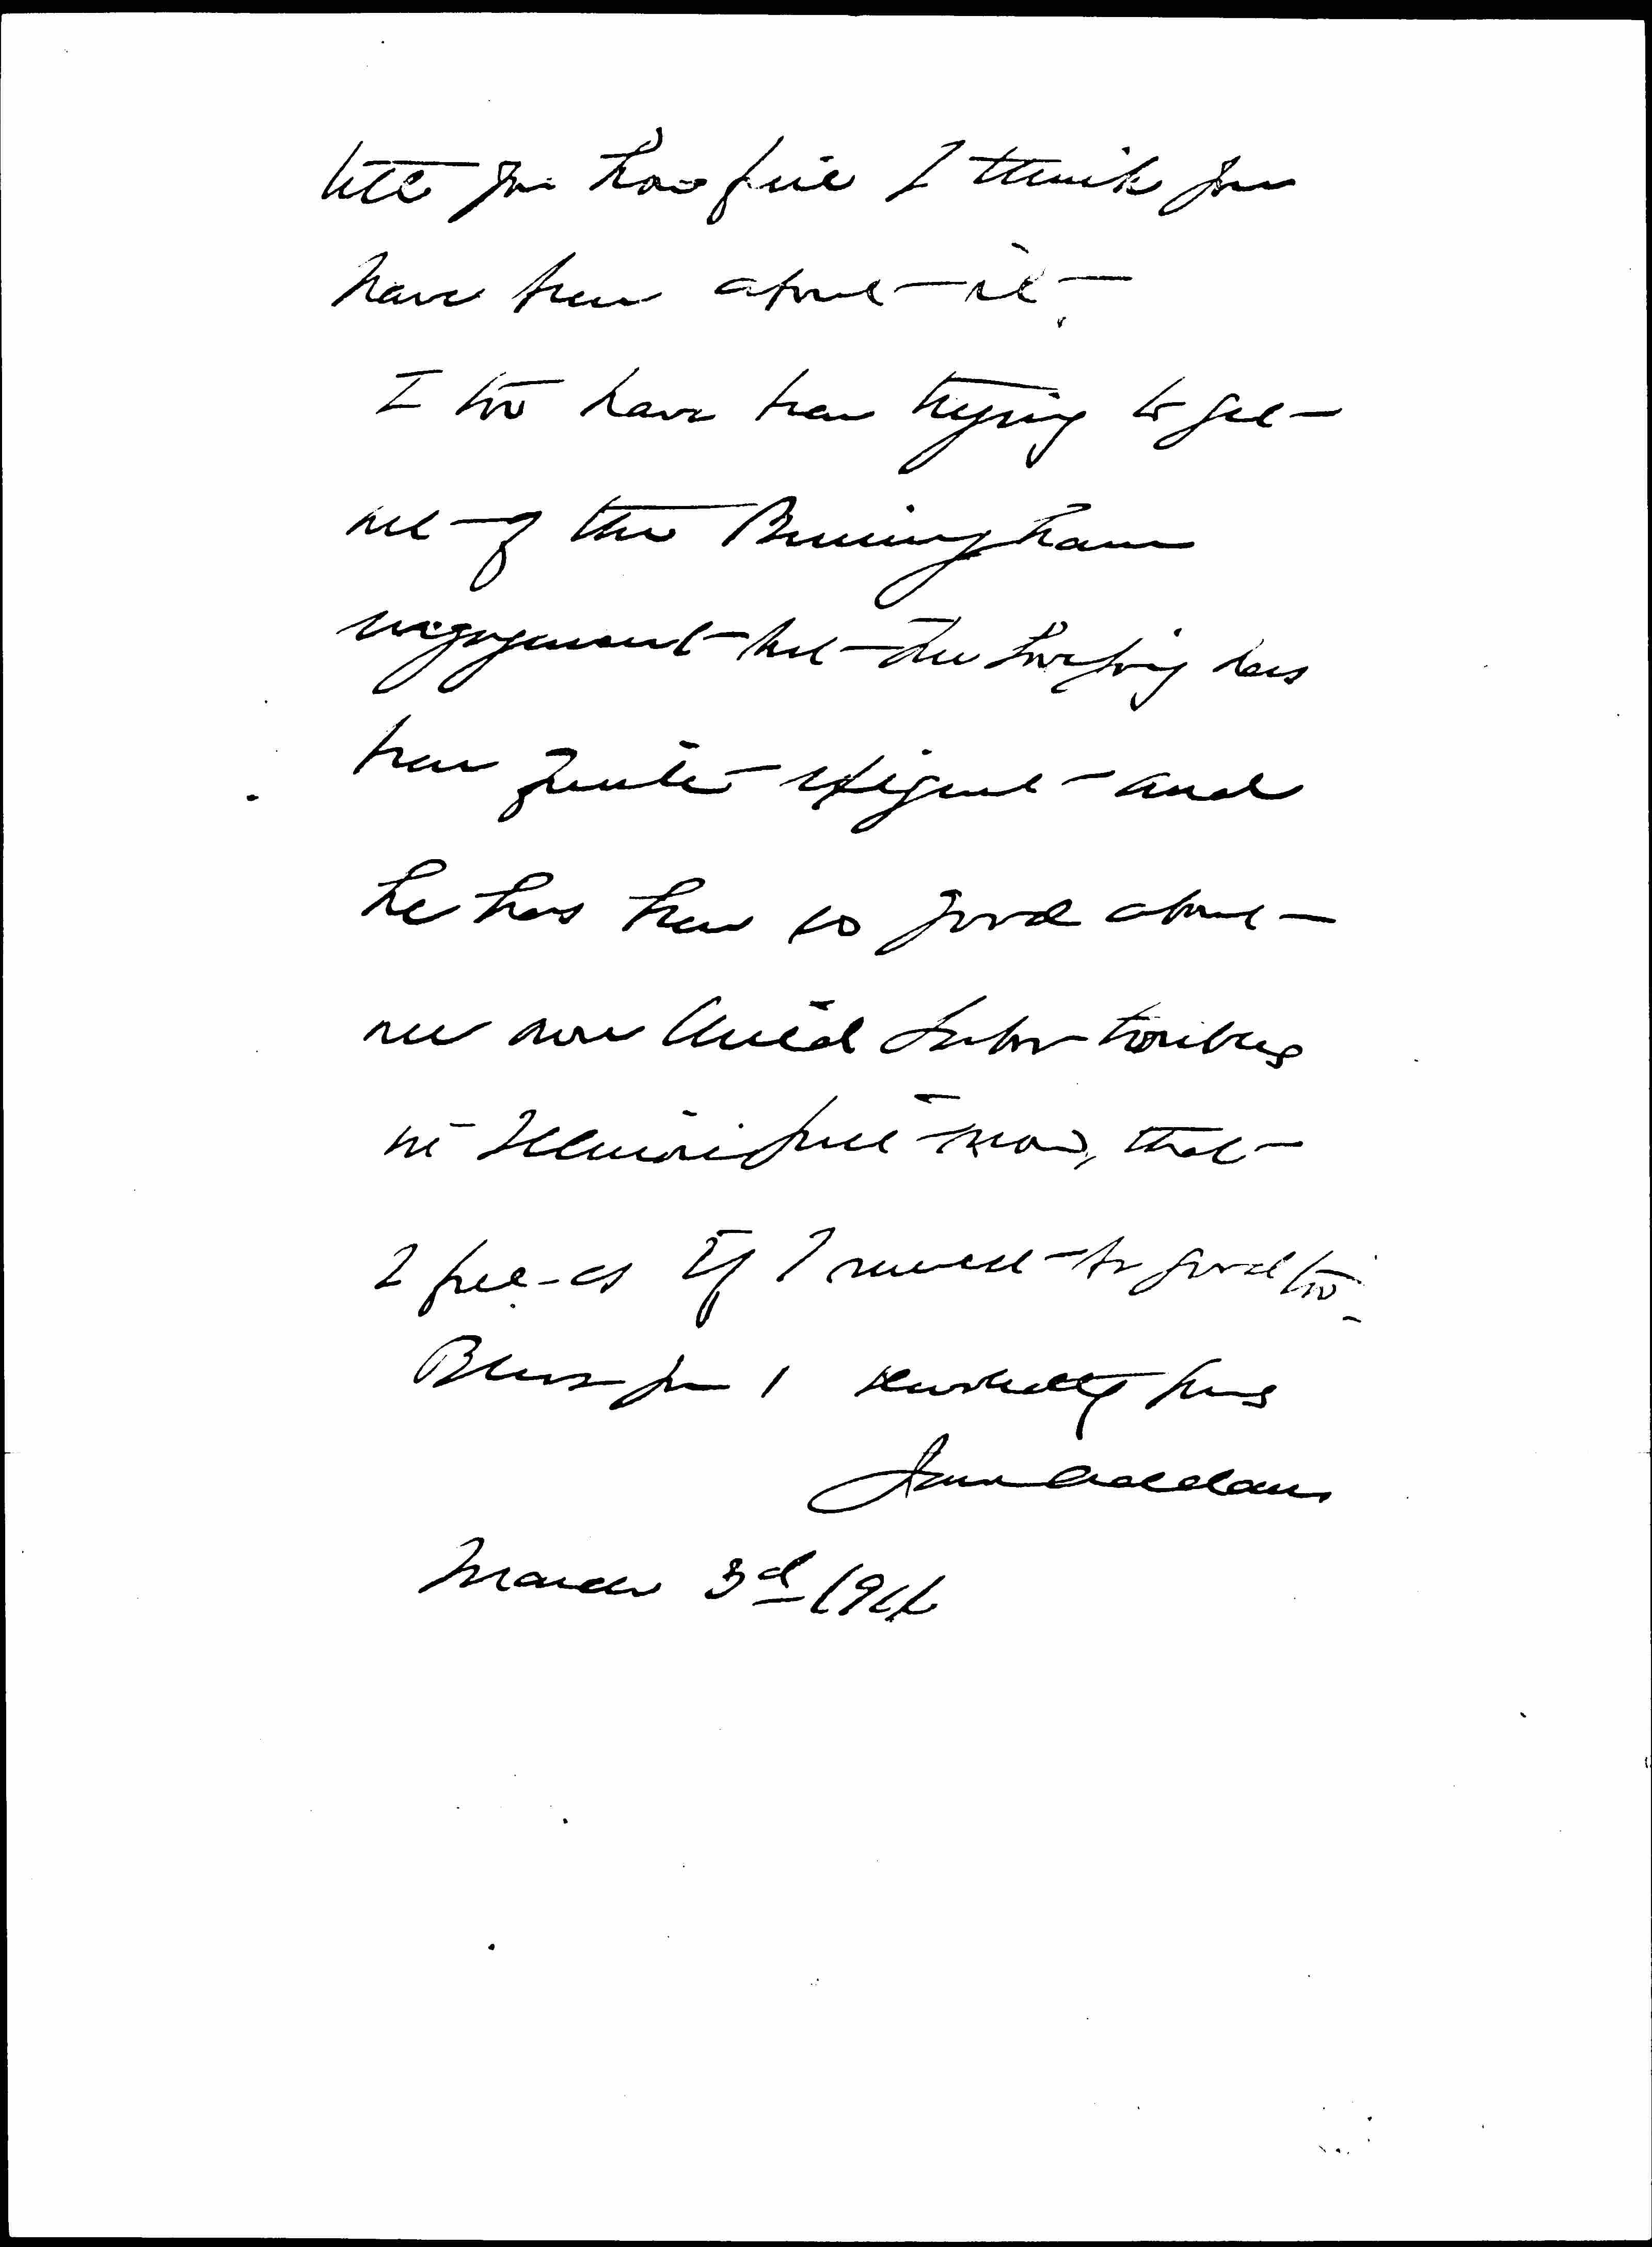 tell you how fine I think you
have been about it.
I too have been trying to get
out of the Birmingham
engagement but Mr Lovejoy has
been quite exigent and
he has been so good about
our own Child Labor troubles
in Illinois just now, that
I feel as if I must be good too.
Bless you! devotedly yours
Jane Addams
March 3d 1911